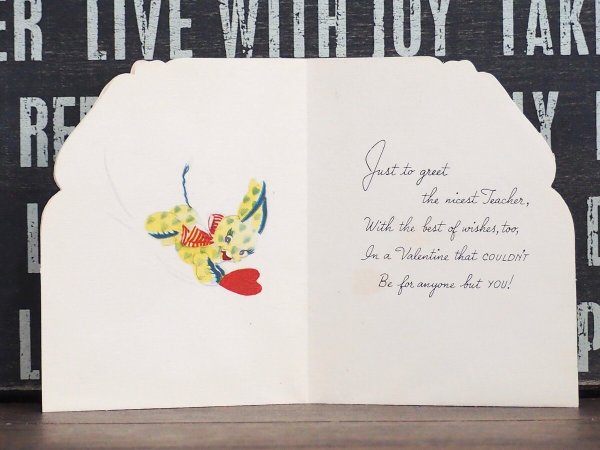 ER LIVE WITH JOY TAKE
Just to greet
the nicest Teacher,
With the best of wishes, too,
In a Valentine that COULDN'T
Be for anyone but YOU!